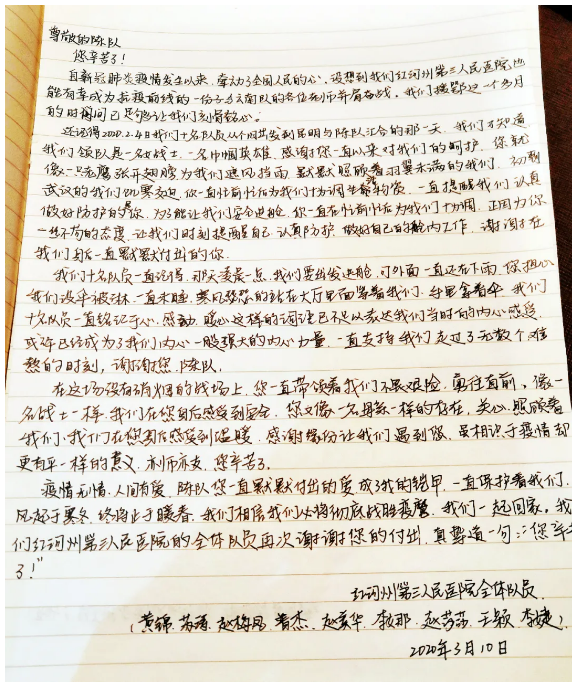 尊敬的陈队
您辛苦了！
自新冠肺炎疫情发生以来，牵动了全国人民的心，没想到我们红河州第三人民医院也
能有幸成为抗疫前线的一份子与云南队的各位老师并肩奋战。我们援鄂近一个多月
的时间已足够让我们刻骨铭心。
还记得2020.2.4日我们十名队员从个旧出发到昆明与陈队汇合的那一天，我们才知道
我们领队是一名女战士，一名巾帼英雄，感谢您一直以来对我们的呵护，您就
像一只老鹰张开翅膀为我们遮风挡雨，默默照顾着羽翼未满的我们，初到
武汉的我们饥寒交迫，你一直忙前忙后为我们协调生活物资，一直提醒我们认真
做好防护的是你，为了能让我们安全进舱，你一直在忙前忙后为我们协调，正因为你
一丝不苟的态度，让我们时刻提醒自己，认真防护，做好自己的舱内工作，谢谢在
我们身后一直默默付出的你。
我们十名队员一直记得，那天凌晨一点，我们要出发进舱，可外面一直还在下雨，您担心
我们没伞被淋，一直未睡，寒风瑟瑟的站在大厅里面等着我们，手里拿着伞，我们
十名队员一直铭记于心，感动、暖心这样的词语已不足以表达我们当时的内心感受
或许已经成为了我们内心一股强大的内心力量，一直支持我们走过了无数个难
熬的时刻，谢谢您，陈队。
在这场没有硝烟的战场上，您一直带领着我们不畏艰险，勇往直前，像一
名战士一样，我们在您身后感受到安全，您又像一名母亲一样的存在，关心、照顾着
我们，我们在您身后感受到温暖，感谢缘份让我们遇到您，虽相识于疫情却
更有不一样的意义，亦师亦友，您辛苦了。
疫情无情，人间有爱，陈队您一直默默付出的爱成了我的铠甲，一直保护着我们，
风起于寒冬，终将止于暖春，我们相信我们必将彻底战胜疫魔，我们一起回家，我
们红河州第三人民医院的全体队员再次谢谢您的付出，真挚道一句："您辛苦
了！"
红河州第三人民医院全体队员
（黄锦、苏 、赵梅凤、普杰、赵 华、李 那、赵莎莎、王颖、李婕）
2020年3月10日